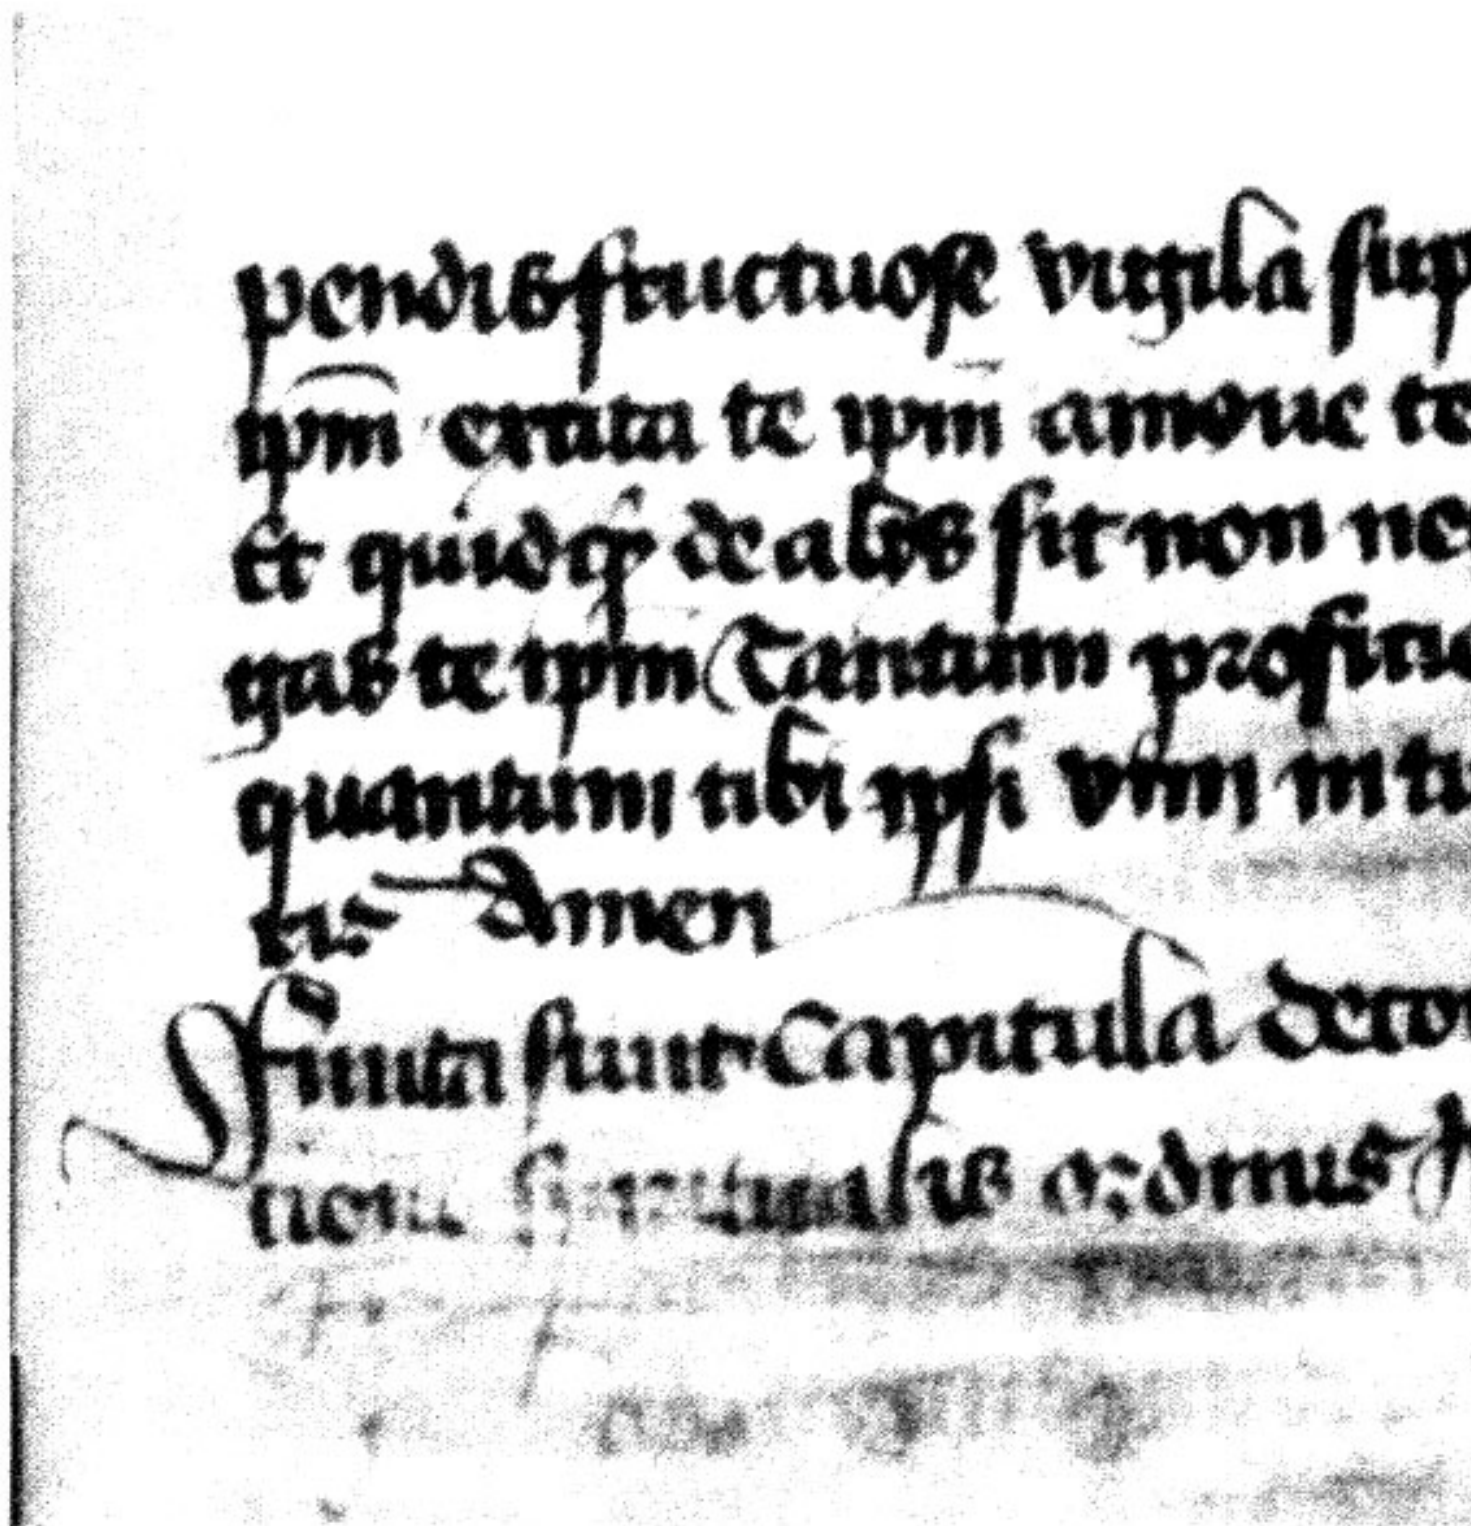 pendis fructuose vigila sup
ip̄m excita te ip̄m amoue te
Et quidq̢ de alijs sit non ne
gas te ip̄m Tantum profitie
quantum tibi ipsi vim intu
tis Amen
Ffinita sunt Capitula deco
tionis spiritualis ordinis